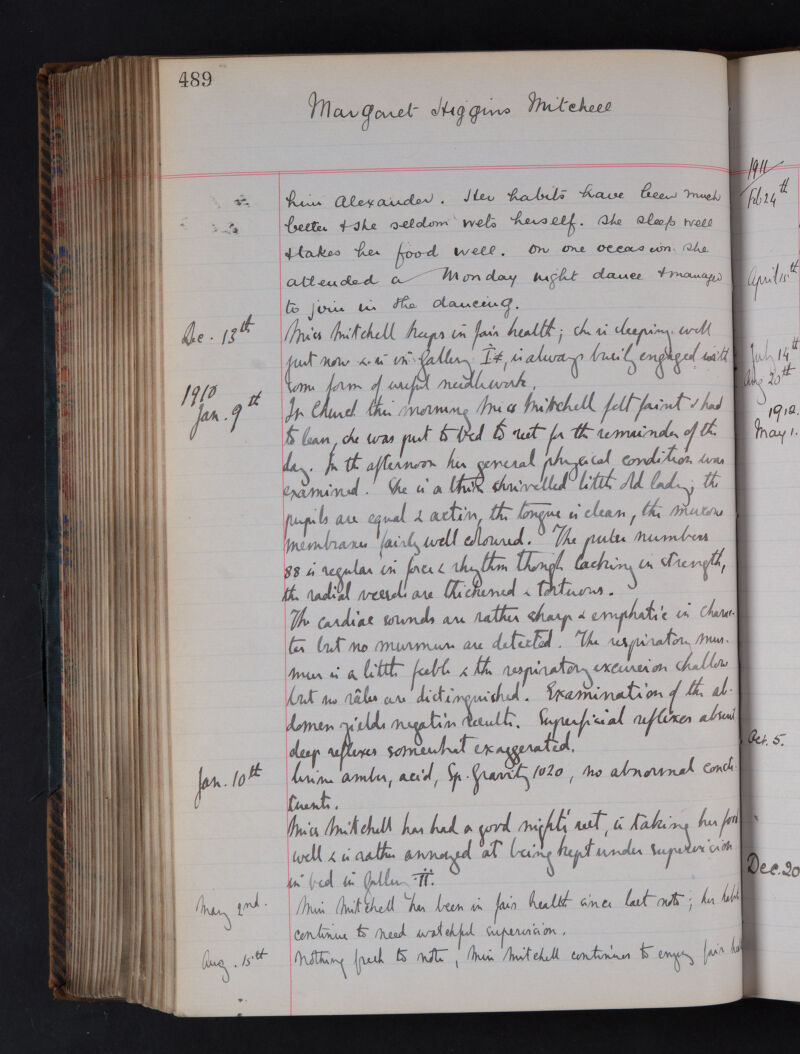 489
Margaret Higgins Mitchell
him Alexander. Her habits have been much
better & she seldom wets herself. She sleeps well
& takes her food well. On one occasion she
attended a Monday night dance & managed
to join in the dancing.
Dec. 13th Miss Mitchell keeps in fair health; she is sleeping well
just now & is in Gallery I, is always busily engaged with
some form of useful needlework.
1910
Jan. 9th In Church this morning Miss Mitchell felt faint & had
to leave, she was put to bed to rest for the remainder of the
day. In the afternoon her general physical condition was
examined. She is a thin shrivelled little old lady; the
pupils are equal & active, the tongue is clean, the mucous
membranes fairly well coloured. The pulse numbers
88 is regular in force & rhythm though lacking in strength,
the radial vessels are thickened & tortuous.
The cardiac sounds are rather sharp & emphatic in charac-
ter but no murmurs are detected. The respiratory mur-
mur is a little feeble & the respiratory excursion shallow
but no râles are distinguished. Examination of the ab-
domen yields negative results. Superficial reflexes absent
deep reflexes somewhat exaggerated.
Jan. 10th Urine amber, acid, Sp. Gravity 1020, no abnormal consti-
tuents.
Miss Mitchell has had a good night's rest, is taking her food
well & is rather annoyed at being kept under supervision
in bed in Gallery II.
May 2nd. Miss Mitchell has been in fair health since last note; her habits
continue to need watchful supervision.
Aug. 15th Nothing fresh to note, Miss Mitchell continues to enjoy fair
1911
Feb 24th
April 15th
July 14th
Aug 20th
1912
May 1.
Oct. 5.
Dec. 20